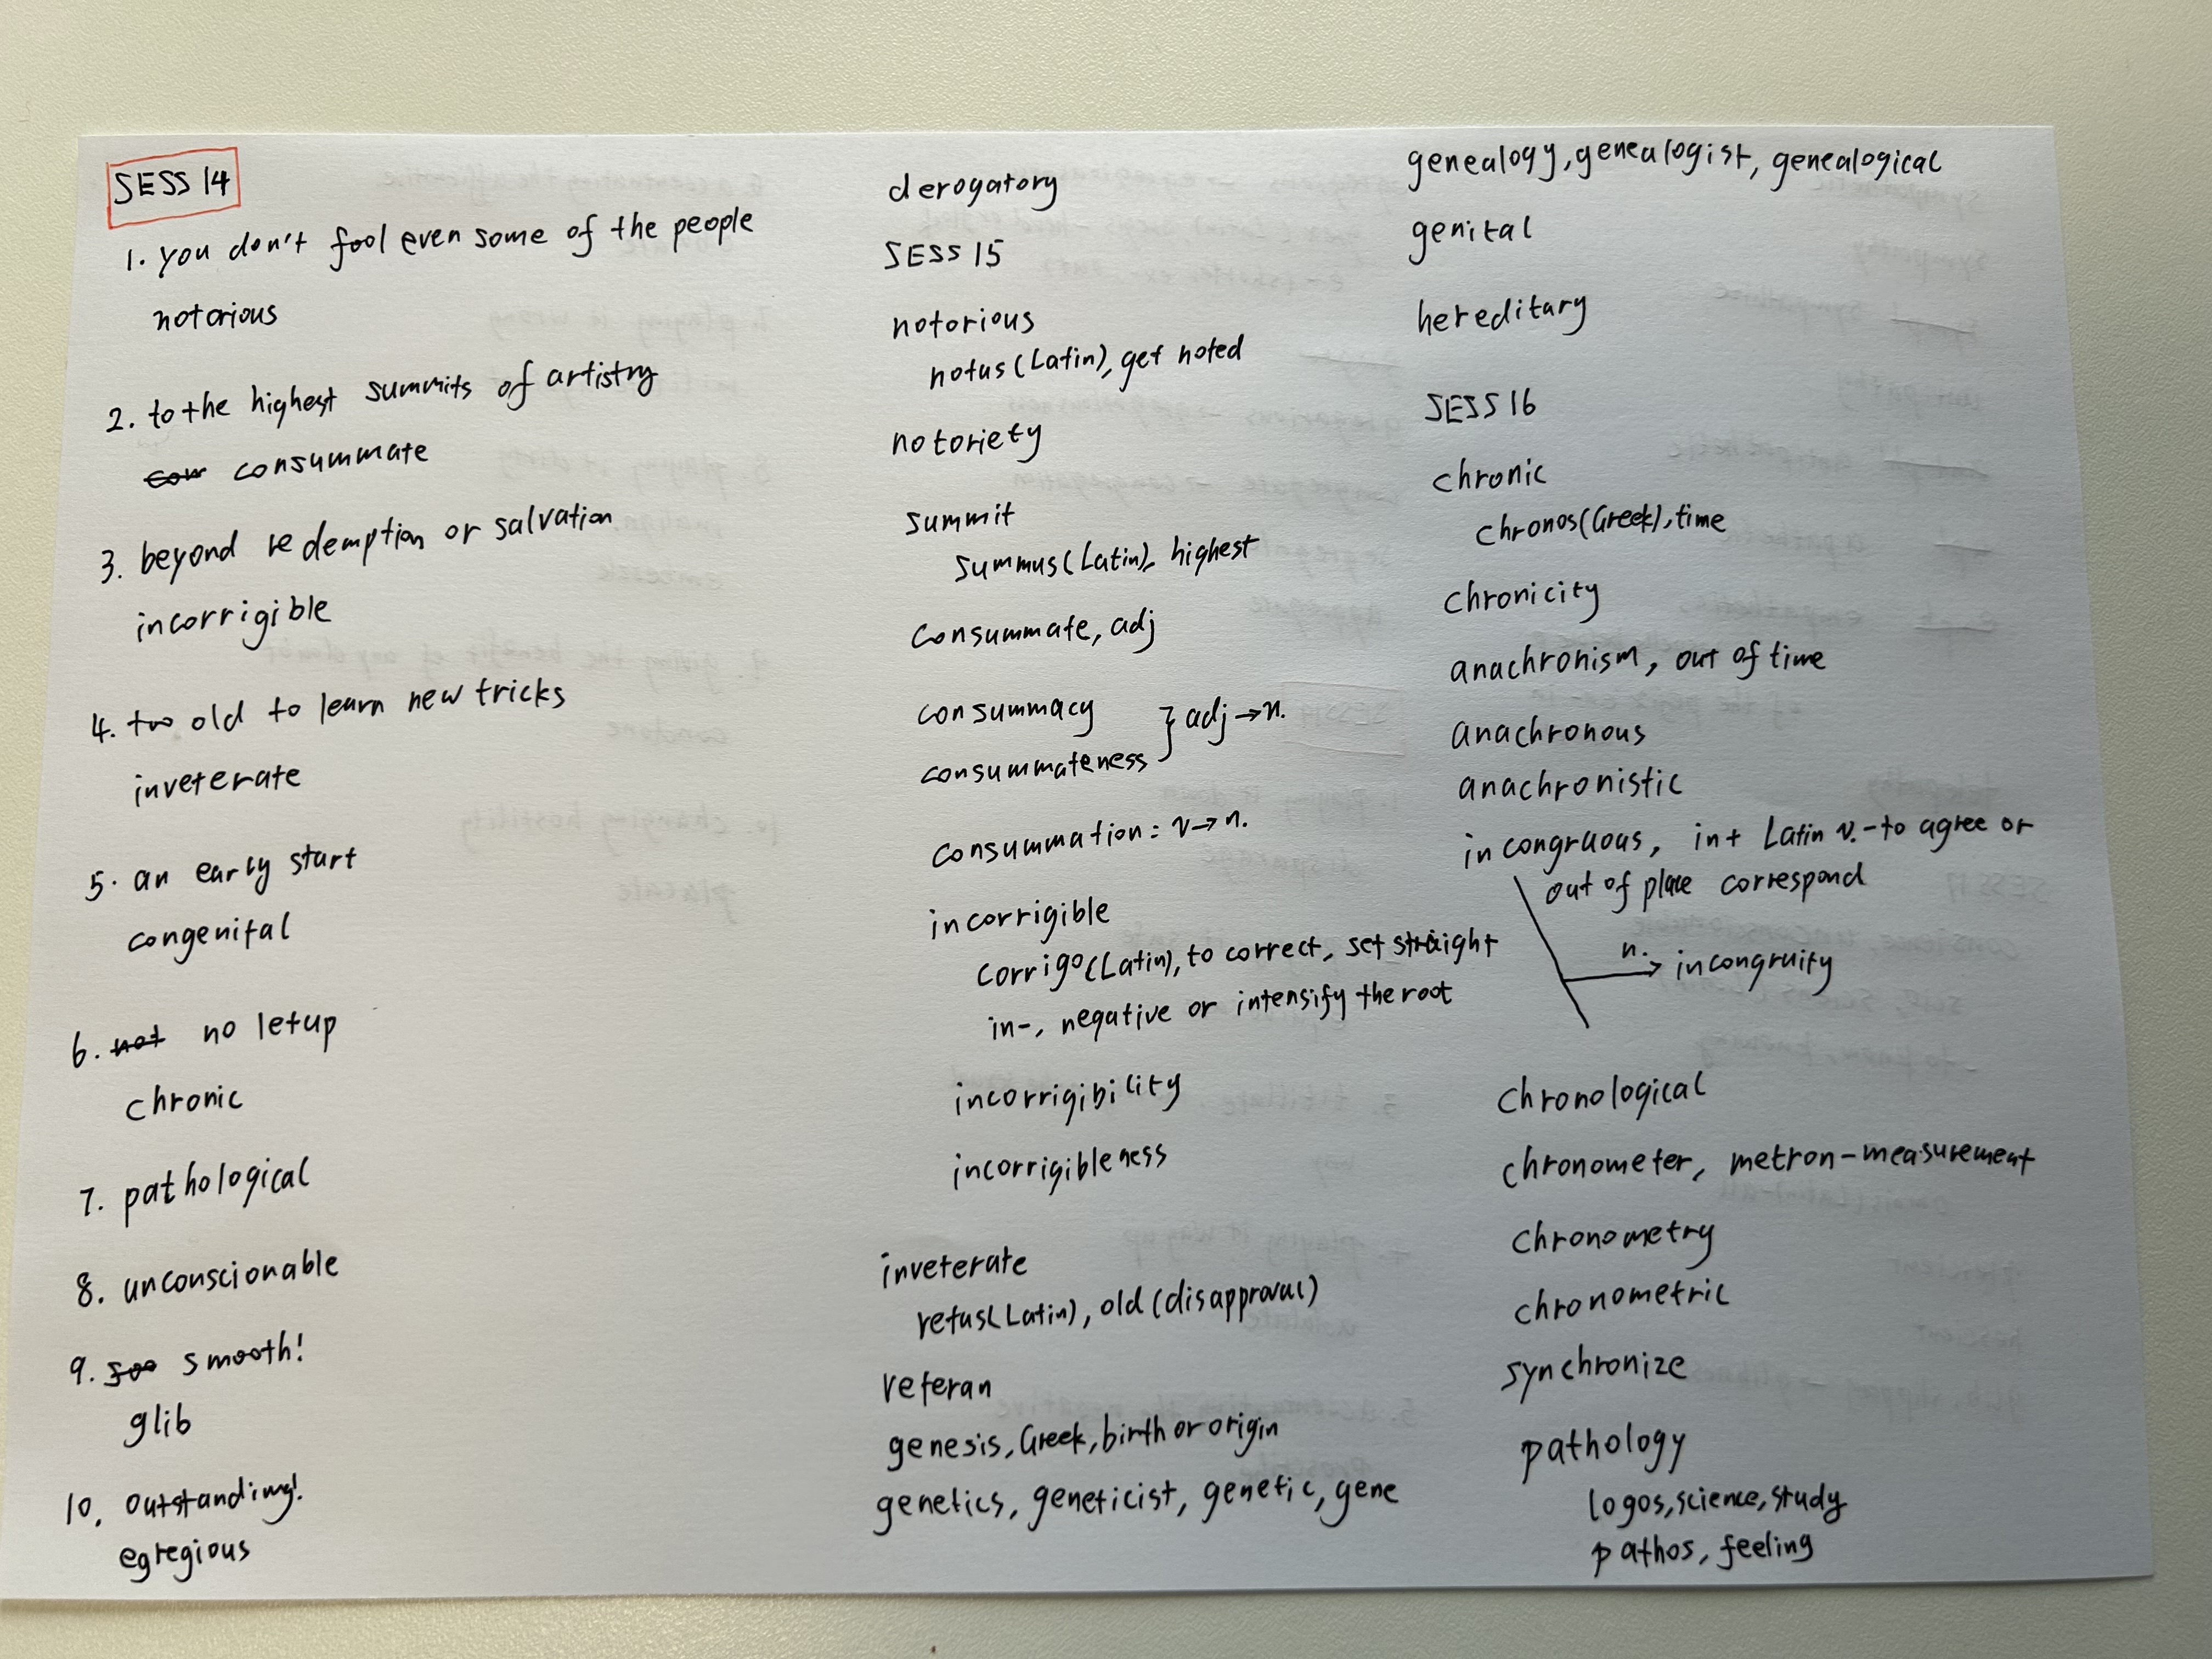 SESS 14
1. you don't fool even some of the people
notorious
2. to the highest summits of artistry
consummate
3. beyond redemption or salvation
incorrigible
4. too old to learn new tricks
inveterate
5. an early start
congenital
6. not no letup
chronic
7. pathological
8. unconscionable
9. smooth!
glib
10. outstanding!
egregious
derogatory
SESS 15
notorious
notus (Latin), get noted
notoriety
summit
summus (Latin), highest
consummate, adj
consummacy
consummateness } adj → n.
consummation = v → n.
incorrigible
corrigo (Latin), to correct, set straight
in-, negative or intensify the root
incorrigibility
incorrigibleness
inveterate
vetus (Latin), old (disapproval)
veteran
genesis, Greek, birth or origin
genetics, geneticist, genetic, gene
genealogy, genealogist, genealogical
genital
hereditary
SESS 16
chronic
chronos (Greek), time
chronicity
anachronism, out of time
anachronous
anachronistic
incongruous, in + Latin v. - to agree or
out of place correspond
n. → incongruity
chronological
chronometer, metron - measurement
chronometry
chronometric
synchronize
pathology
logos, science, study
pathos, feeling